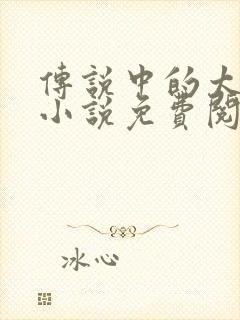 傳說中的大
小說免費閱
冰心